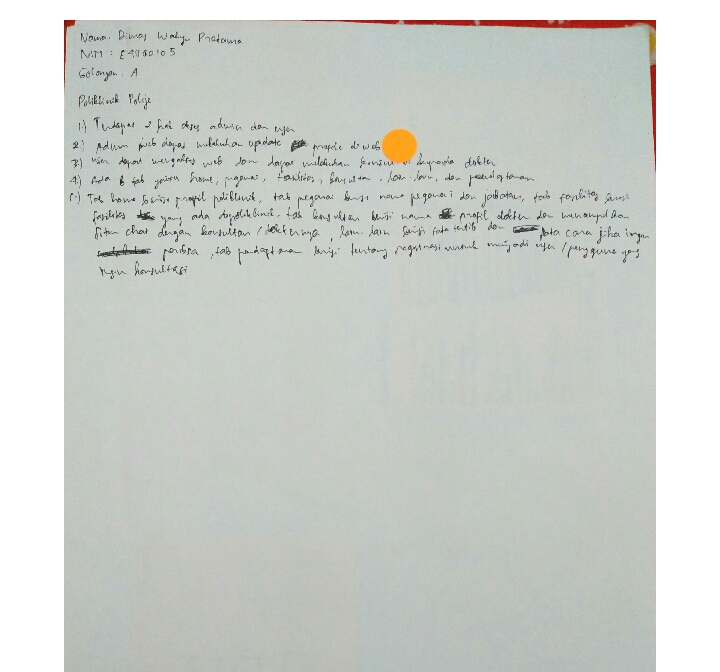 Nama. Dimas Wahyu Pratama
NIM : E41180105
Golongan. A
Poliklinik Polije
1.) Terdapat 2 hak akses admin dan user
2.) Admin web dapat melakukan update profile di web
3.) User dapat mengakses web dan dapat melakukan kepada dokter
4.) Ada 6 tab yaitu home, pegawai, fasilitas, konsultan, lain-lain, dan pendaftaran
5.) Tab home berisi profil poliklinik, tab pegawai berisi nama pegawai dan jabatan, tab fasilitas berisi
fasilitas yang ada dipoliklinik, tab konsultan berisi nama profil dokter dan menampilkan
fitur chat dengan konsultan/dokternya, lain lain berisi tata tertib dan tata cara jika ingin
periksa, tab pendaftaran berisi tentang registrasi untuk menjadi user/pengguna yang
ingin konsultasi